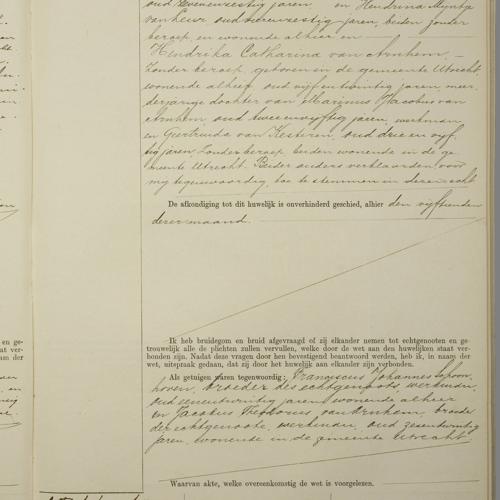 oud zevenenzestig jaren, en Hendrina Mijntje
van Keur oud vierenzestig jaren, beiden zonder
beroep, en wonende alhier en
Hendrika Catharina van Arnhem, —
zonder beroep, geboren in de gemeente Utrecht,
wonende alhier, oud vijf en twintig jaren, meer-
derjarige dochter van Marinus Jacobus van
Arnhem oud tweeenvijftig jaren, werkman,
en Geertruida van Kesteren, oud drie en vijf-
tig jaren, zonder beroep, beiden wonende in de ge-
meente Utrecht. Beider ouders verklaarden voor
mij tegenwoordig, toe te stemmen in deze echt
De afkondiging tot dit huwelijk is onverhinderd geschied, alhier den vijftienden
dezer maand.
Ik heb bruidegom en bruid afgevraagd of zij elkander nemen tot echtgenooten en ge-
trouwelijk alle de plichten zullen vervullen, welke door de wet aan den huwelijken staat ver-
bonden zijn. Nadat deze vragen door hen bevestigend beantwoord werden, heb ik, in naam der
wet, uitspraak gedaan, dat zij door het huwelijk aan elkander zijn verbonden.
Als getuigen waren tegenwoordig: Franciscus Johannes
hoven, broeder des echtgenoots, werkman,
oud eenentwintig jaren, wonende alhier
en Jacobus Theodorus van Arnhem, broeder
der echtgenoote, werkman, oud zesentwintig
jaren, wonende in de gemeente Utrecht.
Waarvan akte, welke overeenkomstig de wet is voorgelezen.
en ge-
at ver-
am der